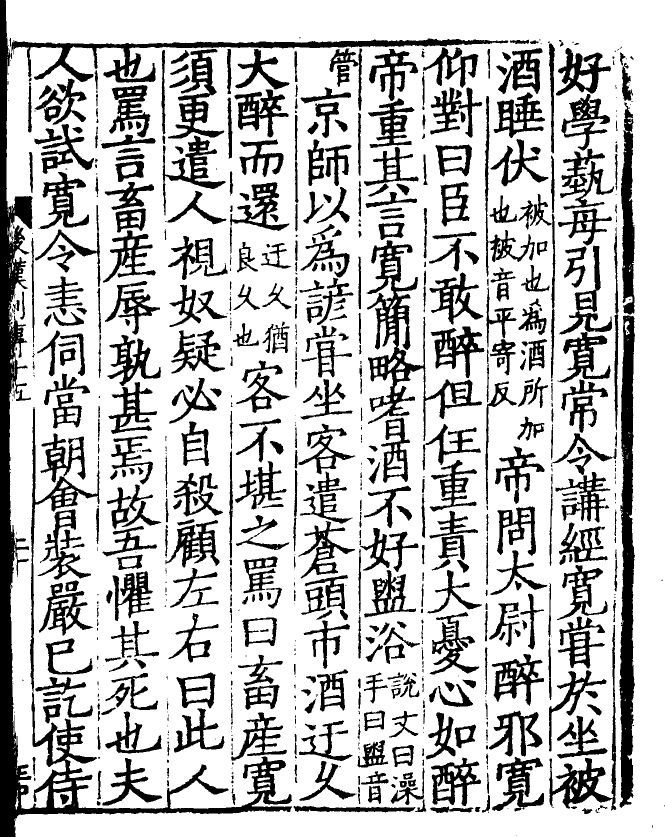 好學藝每引見寛常令講經寛甞於坐被
酒睡伏被加也為酒所加也被音平寄反帝問太尉醉邪寛
仰對曰臣不敢醉但任重責大憂心如醉
帝重其言寛簡略嗜酒不好盥浴說文曰澡手曰盥音
管京師以爲諺甞坐客遣蒼頭市酒迂乆
大醉而還迂乆猶良乆也客不堪之罵曰畜産寛
須更遣人視奴疑必自殺顧左右曰此人
也罵言畜産辱孰甚焉故吾懼其死也夫
人欲試寛令恚伺當朝會装嚴巳訖使侍
後漢列傳十五